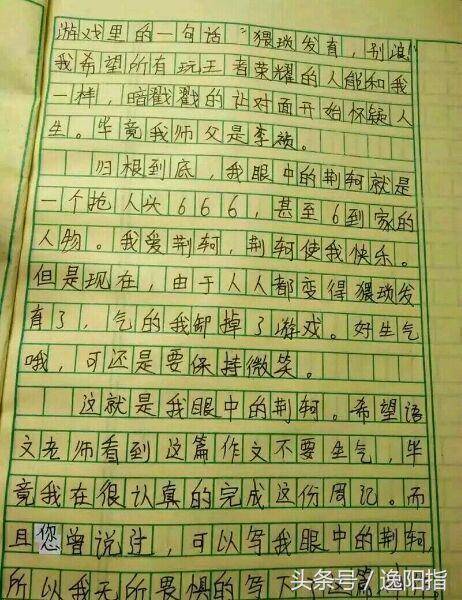 游戏里的一句话“猥琐发育，别浪”
我希望所有玩王者荣耀的人能和我
一样，暗戳戳的让对面开始怀疑人
生。毕竟我师父是李祯。
归根到底，我眼中的荆轲就是
一个抢人头666，甚至6到家的
人物。我爱荆轲，荆轲使我快乐。
但是现在，由于人人都变得猥琐发
育了，气的我卸掉了游戏。好生气
哦，可还是要保持微笑。
这就是我眼中的荆轲。希望语
文老师看到这篇作文不要生气，毕
竟我在很认真的完成这份周记。而
且您曾说过，可以写我眼中的荆轲，
所以我无所畏惧的写下
头条号／逸阳指